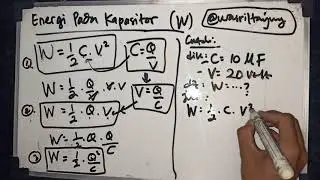 Energi Pada Kapasitor (W)
① W = 1/2 C. V²
C = Q/V
W = 1/2 . Q/V . V.V
V = Q/C
② W = 1/2 . Q . V
W = 1/2 . Q . Q/C
③ W = 1/2 . Q²/C
Contoh:
dik: C = 10 µF
- V = 20 Volt
W = ....?
W = 1/2 . C . V²